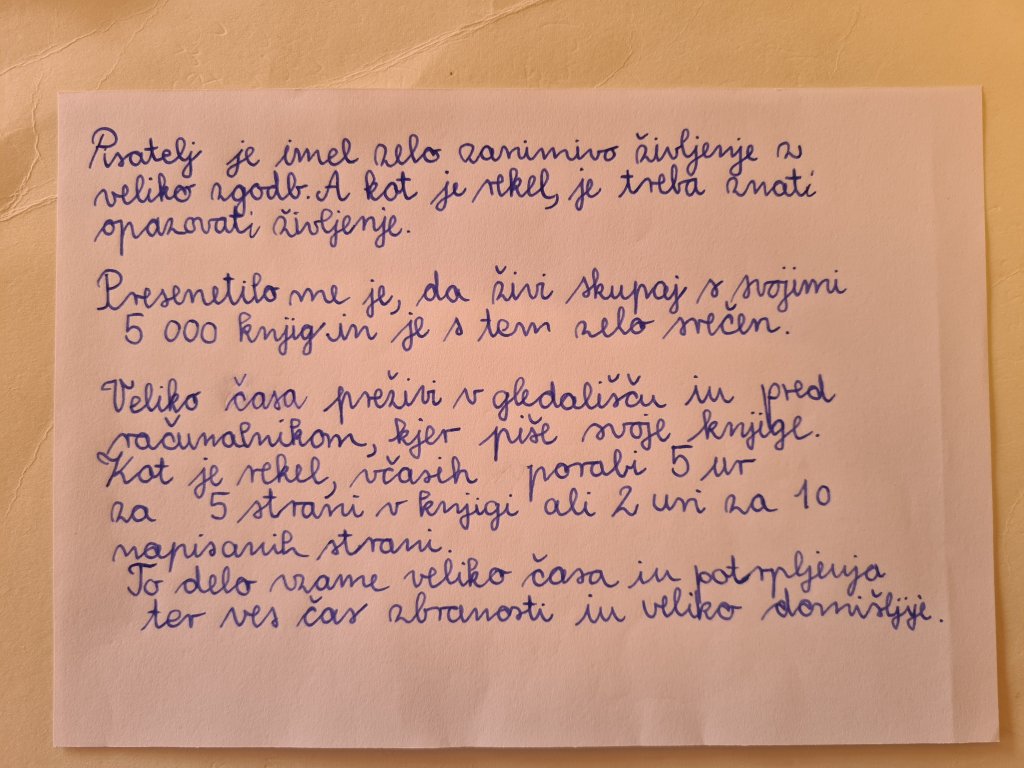 Pisatelj je imel zelo zanimivo življenje z
veliko zgodb. A kot je rekel, je treba znati
opazovati življenje.
Presenetilo me je, da živi skupaj s svojimi
5 000 knjig in je s tem zelo srečen.
Veliko časa preživi v gledališču in pred
računalnikom, kjer piše svoje knjige.
Kot je rekel, včasih porabi 5 ur
za 5 strani v knjigi ali 2 uri za 10
napisanih strani.
To delo vzame veliko časa in potrpljenja
ter ves čas zbranosti in veliko domišljije.